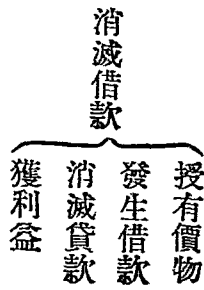 消滅借款
授有價物
發生借款
消滅貸款
獲利益